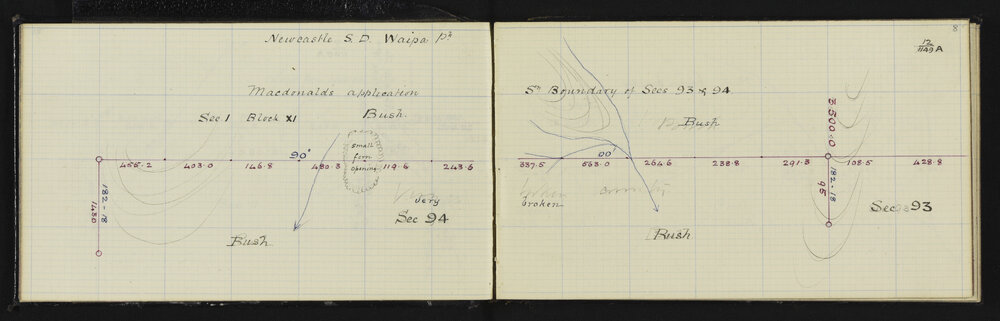 Newcastle S.D. Waipa Ph
Macdonalds application
Sec 1 Block XI
Bush
small
fern
opening
90°
455.2 403.0 146.8 480.3 119.6 243.6
182-18
1430
Very
Sec 94
Bush
8
12
1149 A
Sth Boundary of Secs 93 & 94
Bush
Σ 500.0
90°
337.5 563.0 264.6 238.8 291.3 108.5 428.8
182-18
95
broken
Sec 93
Bush